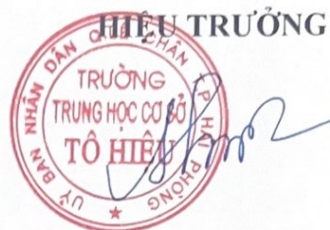 HIỆU TRƯỞNG
UỶ BAN NHÂN DÂN Q. LÊ CHÂN T.P HẢI PHÒNG
TRƯỜNG
TRUNG HỌC CƠ SỞ
TÔ HIỆU